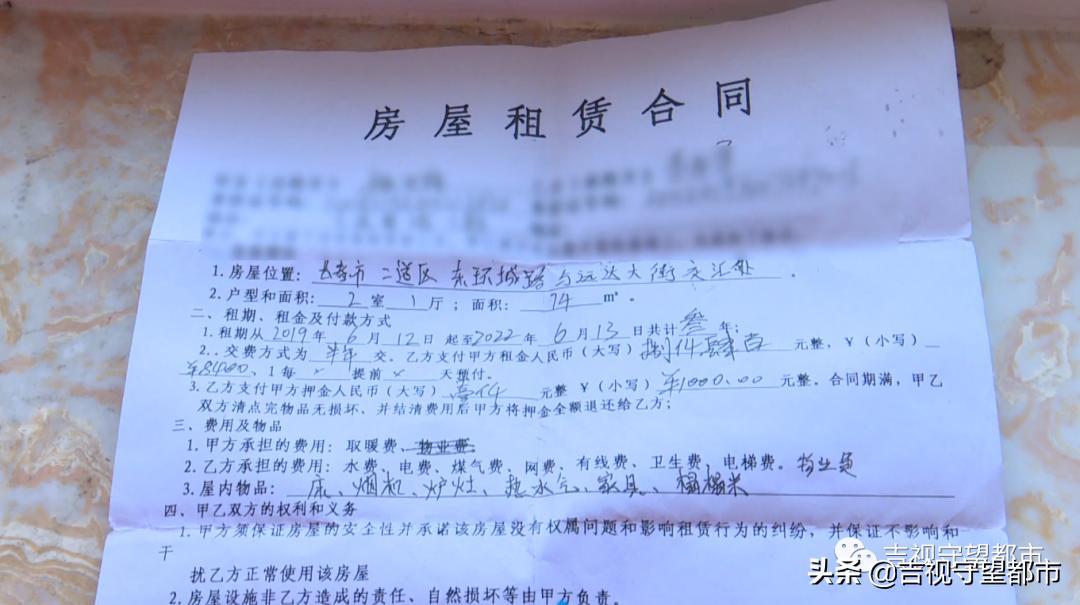 房屋租赁合同
1.房屋位置：长春市二道区东环城路与远达大街交汇处。
2.户型和面积：2室1厅；面积：74m²。
二、租期、租金及付款方式
1.租期从2019年6月12日起至2022年6月13日共计叁年；
2..交费方式为半年交。乙方支付甲方租金人民币（大写）捌仟肆百元整，￥（小写）
￥8400、1每×提前×天预付。
3.乙方支付甲方押金人民币（大写）壹仟元整￥（小写）￥1000.00元整。合同期满，甲乙
双方清点完物品无损坏、并结清费用后甲方将押金全额退还给乙方；
三、费用及物品
1.甲方承担的费用：取暖费、物业费
2.乙方承担的费用：水费、电费、煤气费、网费、有线费、卫生费、电梯费。物业费
3.屋内物品：床、烟机、炉灶、热水气、家具、榻榻米
四、甲乙双方的权利和义务
1.甲方须保证房屋的安全性并承诺该房屋没有权属问题和影响租赁行为的纠纷，并保证不影响和
干
扰乙方正常使用该房屋
2.房屋设施非乙方造成的责任、自然损坏等由甲方负责。
吉视守望都市
头条@吉视守望都市